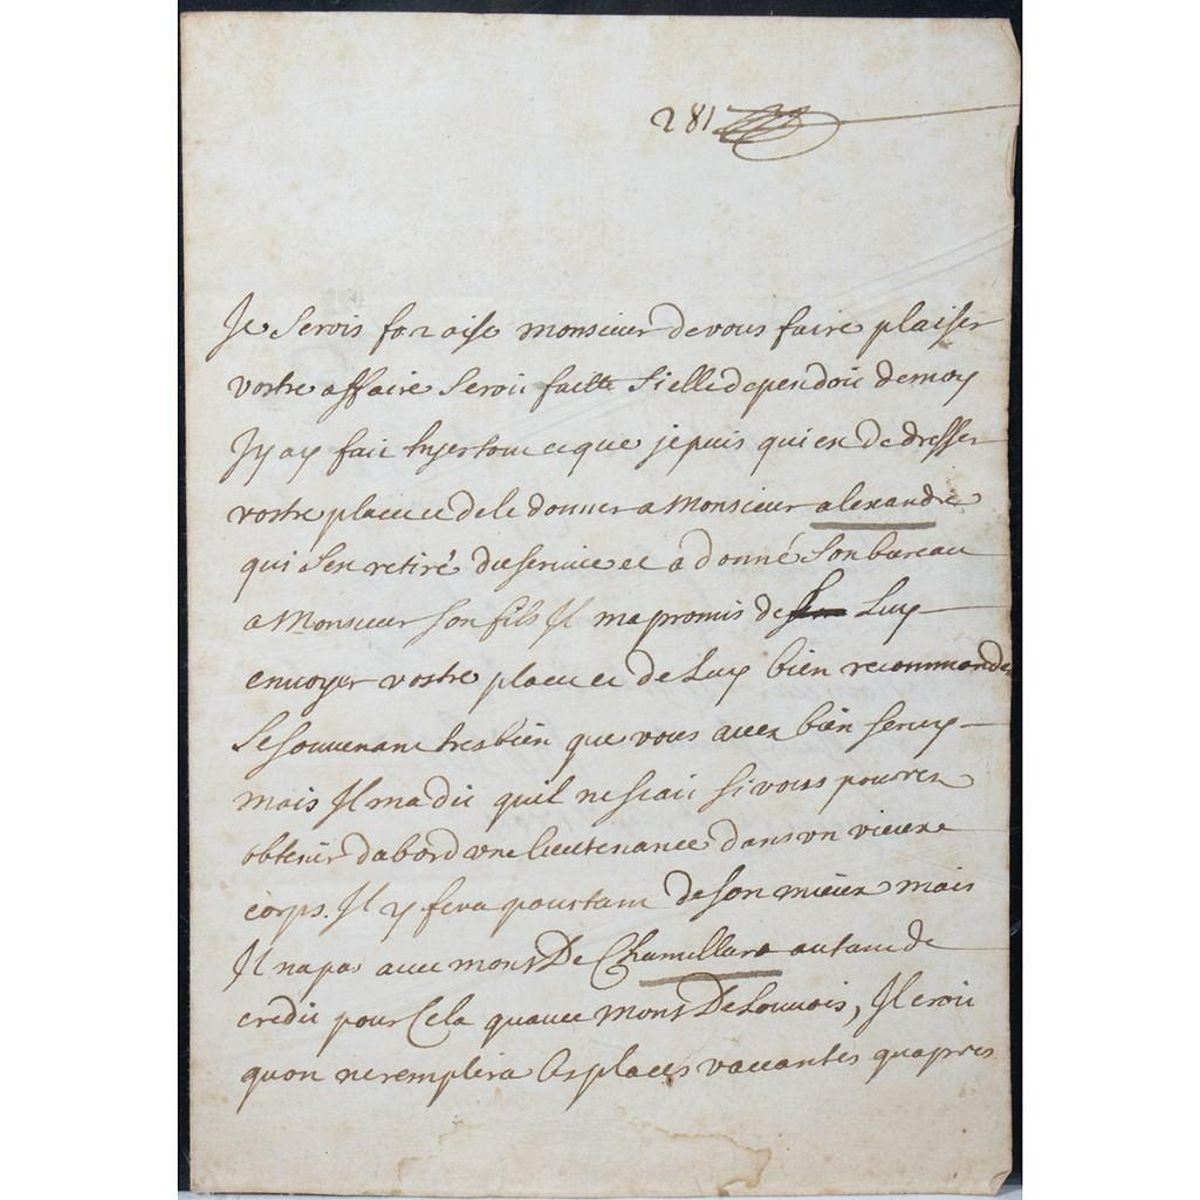 281
Je serois for aise monsieur de vous faire plaiser
vostre affaire seroit faitte si elle dependoit de moy
Jy ay fait hyer tout ce que je puis qui est de dresser
vostre placet et de le donner a Monsieur alexandre
qui sest retiré du service et a donné son bureau
a Monsieur son fils Il ma promis de luy
envoyer vostre placet et de luy bien recommander
se souvenant tres bien que vous avez bien servy
mais Il ma dit quil ne scait si vous pourrez
obtenir dabord une lieutenance dans un vieux
corps. Il y fera pourtant de son mieux mais
Il na pas avec mons De Chamillard autant de
credit pour cela quavec mons De Louvois, Il croit
quon ne remplira les places vaccantes quapres